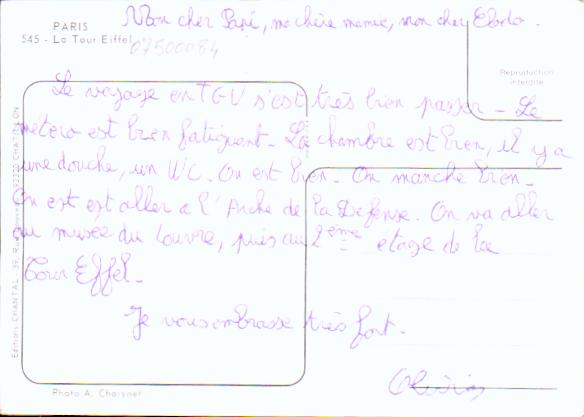 Mon cher Papé, ma chère mamée, mon cher
PARIS
545 - La Tour Eiffel
07500084
Reproduction
interdite
Le voyage en TGV s'est très bien passer - Le
métero est bien fatiguant - La chambre est bien, il y a
une douche, un WC. On est bien - On manche bien -
On est est aller a l'Arche de la Défense. On va aller
au musée du Louvre, puis au 2ème étage de la
Tour Eiffel -
Je vous ombrasse très fort.
Photo A. Choisnet
Editions CHANTAL, 39, 92320 CHATILLON